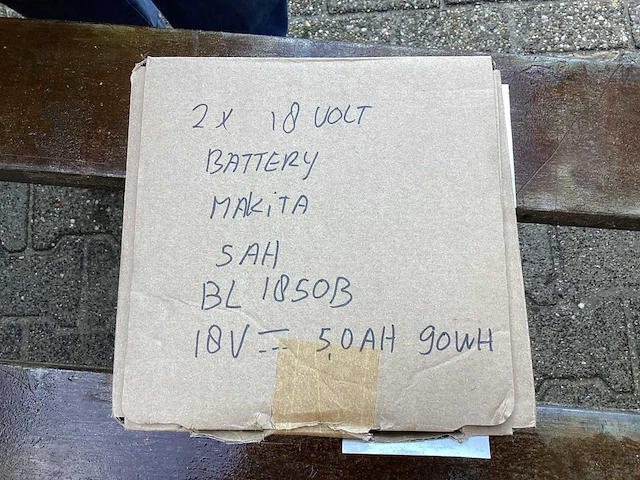 2x 18 VOLT
BATTERY
MAKiTA
5AH
BL 1850B
18V ⎓ 5,0AH 90WH